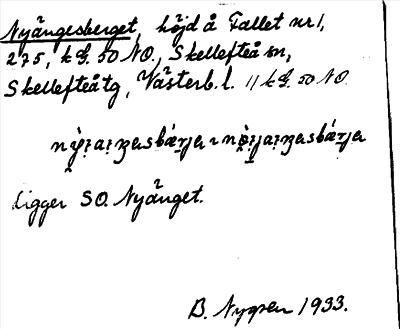 Nyängesberget, höjd å Fallet nr 1,
275, k bl. 50 NO, Skellefteå sn,
Skellefteåtg, Västerb. l. 11 k bl. 50 NO
Ligger SO. Nyänget.
B. Nygren 1933.